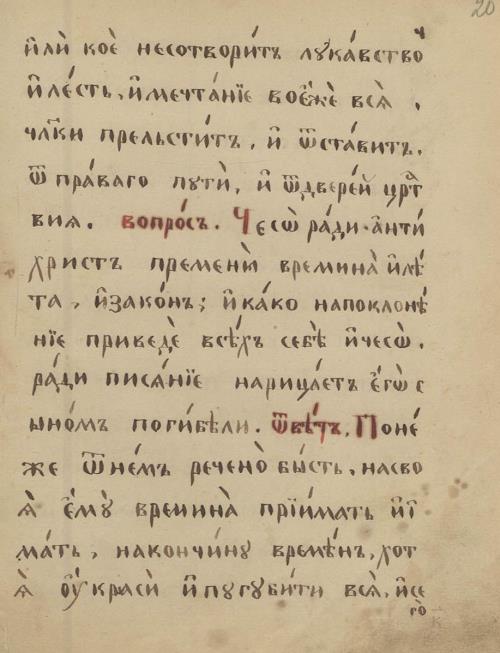 20
и҆лѝ коѐ несотвори́тъ лꙋка́вство
и҆ле́сть, и҆мечта́нїе воє́жѐ всѧ̀,
чл҃ки прельсти́тъ, и҆ ѿста́витъ,
ѿ пра́ваго пꙋтѝ, и҆ ѿдвере́й црⷭ҇т
вия. вопро́съ. Чесѡ̀ ра́ди а҆нти́
христъ премени́ временѧ̀ и҆лѣ́
та, и҆зако́нъ; и҆ка́ко напоклоне́
нїе приведѐ всѣ́хъ себѣ̀ и҆чесѡ̀,
ра́ди писа́нїе нарица́етъ є҆гѡ̀ с
ыномъ поги́бели. Ѿвѣ́тъ, Поне́
же ѿне́мъ речено̀ бы́сть, насво
ѧ̀ є҆мꙋ̀ временѧ̀ прїима́ть и҆ і҆
ма́ть, накончи́нꙋ време́нъ, хот
ѧ̀ оу҆красѝ и҆пꙋгꙋби́ти всѧ̀, и҆се
го̀